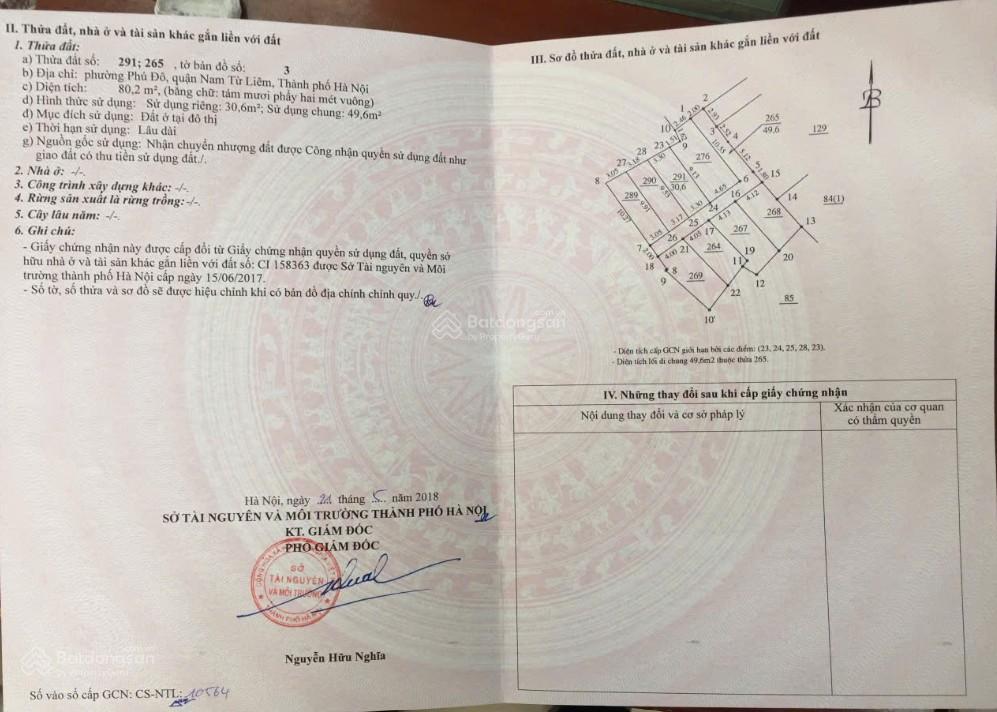 II. Thửa đất, nhà ở và tài sản khác gắn liền với đất
1. Thửa đất:
a) Thửa đất số: 291; 265 , tờ bản đồ số: 3
b) Địa chỉ: phường Phú Đô, quận Nam Từ Liêm, Thành phố Hà Nội
c) Diện tích: 80,2 m², (bằng chữ: tám mươi phẩy hai mét vuông)
d) Hình thức sử dụng: Sử dụng riêng: 30,6m²; Sử dụng chung: 49,6m²
đ) Mục đích sử dụng: Đất ở tại đô thị
e) Thời hạn sử dụng: Lâu dài
g) Nguồn gốc sử dụng: Nhận chuyển nhượng đất được Công nhận quyền sử dụng đất như
giao đất có thu tiền sử dụng đất./.
2. Nhà ở: -/-.
3. Công trình xây dựng khác: -/-.
4. Rừng sản xuất là rừng trồng: -/-.
5. Cây lâu năm: -/-.
6. Ghi chú:
- Giấy chứng nhận này được cấp đổi từ Giấy chứng nhận quyền sử dụng đất, quyền sở
hữu nhà ở và tài sản khác gắn liền với đất số: CI 158363 được Sở Tài nguyên và Môi
trường thành phố Hà Nội cấp ngày 15/06/2017.
- Số tờ, số thửa và sơ đồ sẽ được hiệu chỉnh khi có bản đồ địa chính chính quy./.
Hà Nội, ngày 21 tháng 5 năm 2018
SỞ TÀI NGUYÊN VÀ MÔI TRƯỜNG THÀNH PHỐ HÀ NỘI
KT. GIÁM ĐỐC
PHÓ GIÁM ĐỐC
SỞ
TÀI NGUYÊN
VÀ MÔI TRƯỜNG
Nguyễn Hữu Nghĩa
Số vào sổ cấp GCN: CS-NTL: 10564
III. Sơ đồ thửa đất, nhà ở và tài sản khác gắn liền với đất
B
1
2
2.46
2.00
2.93
265
49,6
129
10
3
2.52
4
9
10.55
5.12
28
23
276
5
1.80
27
3.18
3.30
15
8
3.05
290
291
30,6
9.13
6
4.65
16
4.12
14
84(1)
289
9.91
9.53
3.30
24
268
13
10.37
3.17
25
4.13
267
3.05
26
4.05
17
7
2.00
4.00
21
264
19
20
18
8
11
9
269
12
22
85
10'
- Diện tích cấp GCN giới hạn bởi các điểm: (23, 24, 25, 28, 23).
- Diện tích lối đi chung 49,6m2 thuộc thửa 265.
IV. Những thay đổi sau khi cấp giấy chứng nhận
Nội dung thay đổi và cơ sở pháp lý
Xác nhận của cơ quan
có thẩm quyền
Batdongsan
by PropertyGuru
Batdongsan